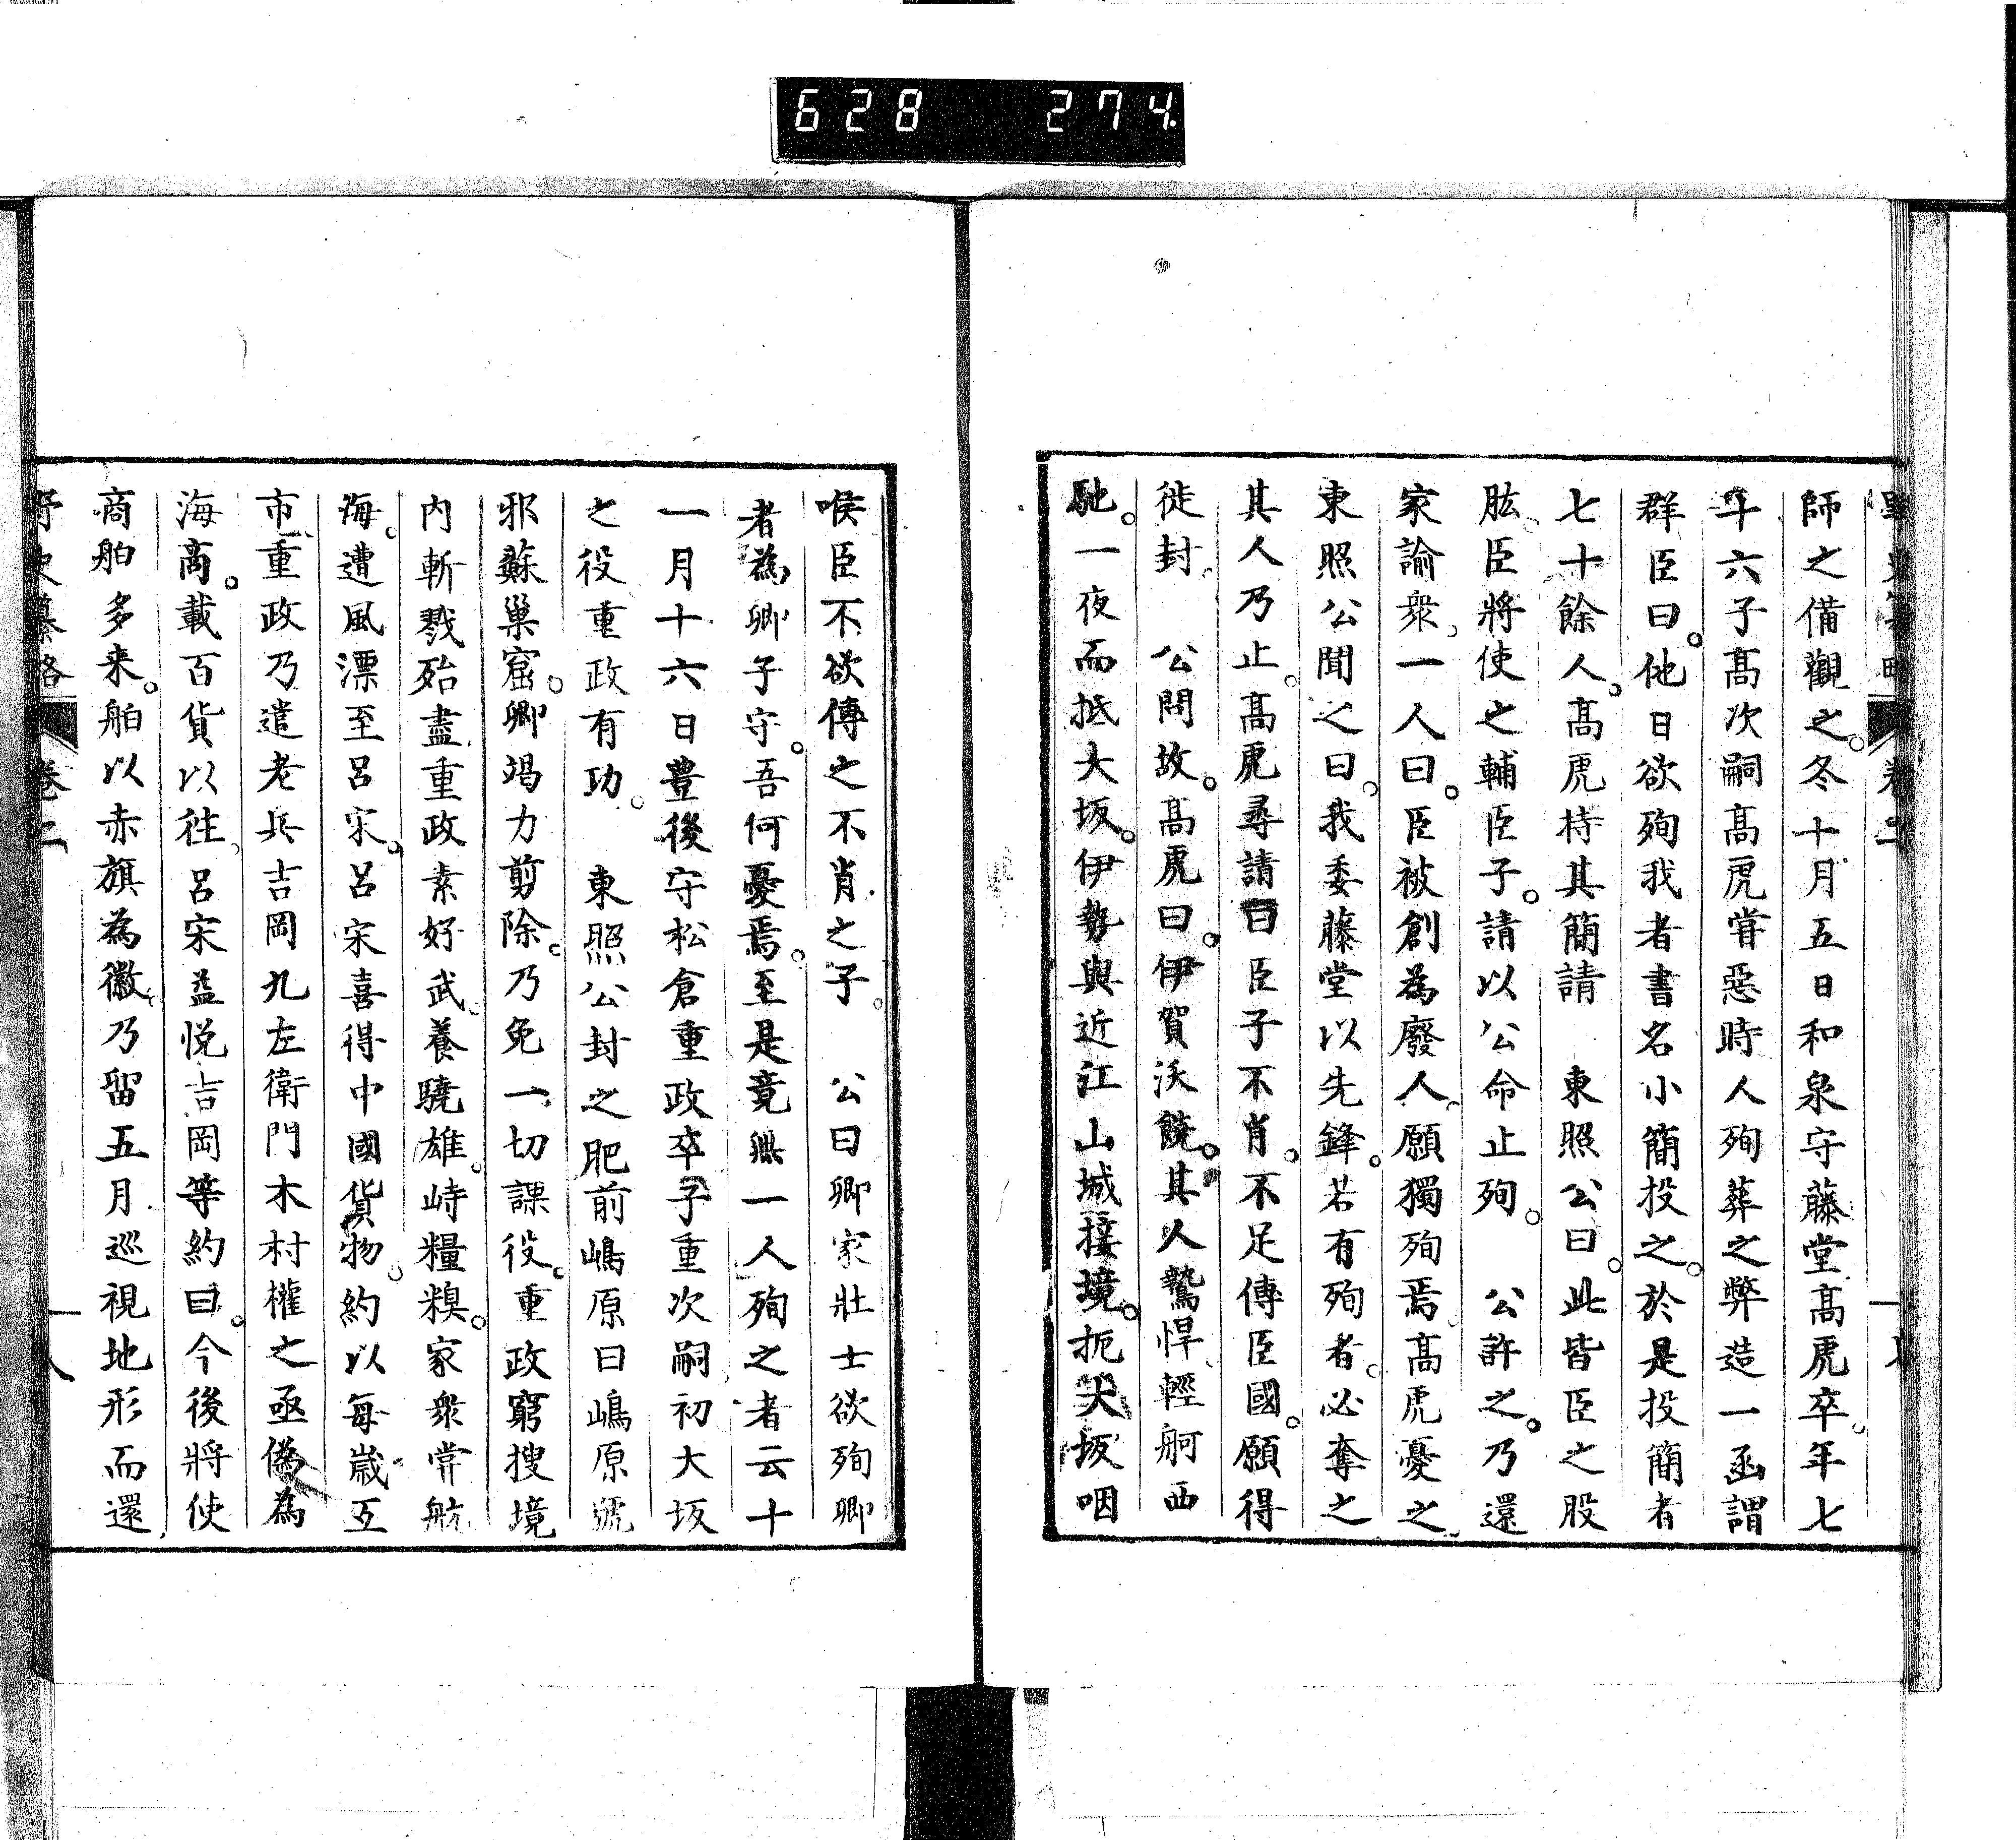 628 274
師之備觀之。冬十月五日和泉守藤堂髙虎卒。年七
十六子髙次嗣髙虎甞惡時人殉葬之弊造一函謂
群臣曰。他日欲殉我者書名小簡投之。於是投簡者
七十餘人。髙虎持其簡請　東照公曰。此皆臣之股
肱。臣將使之輔臣子。請以公命止殉。　公許之。乃還
家諭衆。一人曰。臣被創為廢人。願獨殉焉。髙虎憂之。
東照公聞之曰。我委藤堂以先鋒。若有殉者。必奪之
其人乃止。髙虎尋請曰臣子不肖。不足傳臣國。願得
徙封。　公問故。髙虎曰。伊賀沃饒。其人驁悍。輕舸西
馳。一夜而抵大坂。伊勢與近江山城接境。扼大坂咽
喉臣不欲傳之不肖之子。　公曰卿家壯士欲殉卿
者為卿子守。吾何憂焉。至是竟無一人殉之者云十
一月十六日豊後守松倉重政卒子重次嗣初大坂
之役重政有功。　東照公封之肥前嶋原曰嶋原號
邪蘇巢窟。卿竭力剪除。乃免一切課役。重政窮搜境
内斬戮殆盡重政素好武。養驍雄。峙糧糗。家衆常航
海。遭風漂至呂宋。呂宋喜得中國貨物。約以每歲互
市。重政乃遣老兵吉岡九左衛門木村權之亟偽為
海商。載百貨以往。呂宋益悅吉岡等約曰。今後將使
商舶多来。舶以赤旗為徽。乃留五月巡視地形而還
野史纂略　卷二　十八